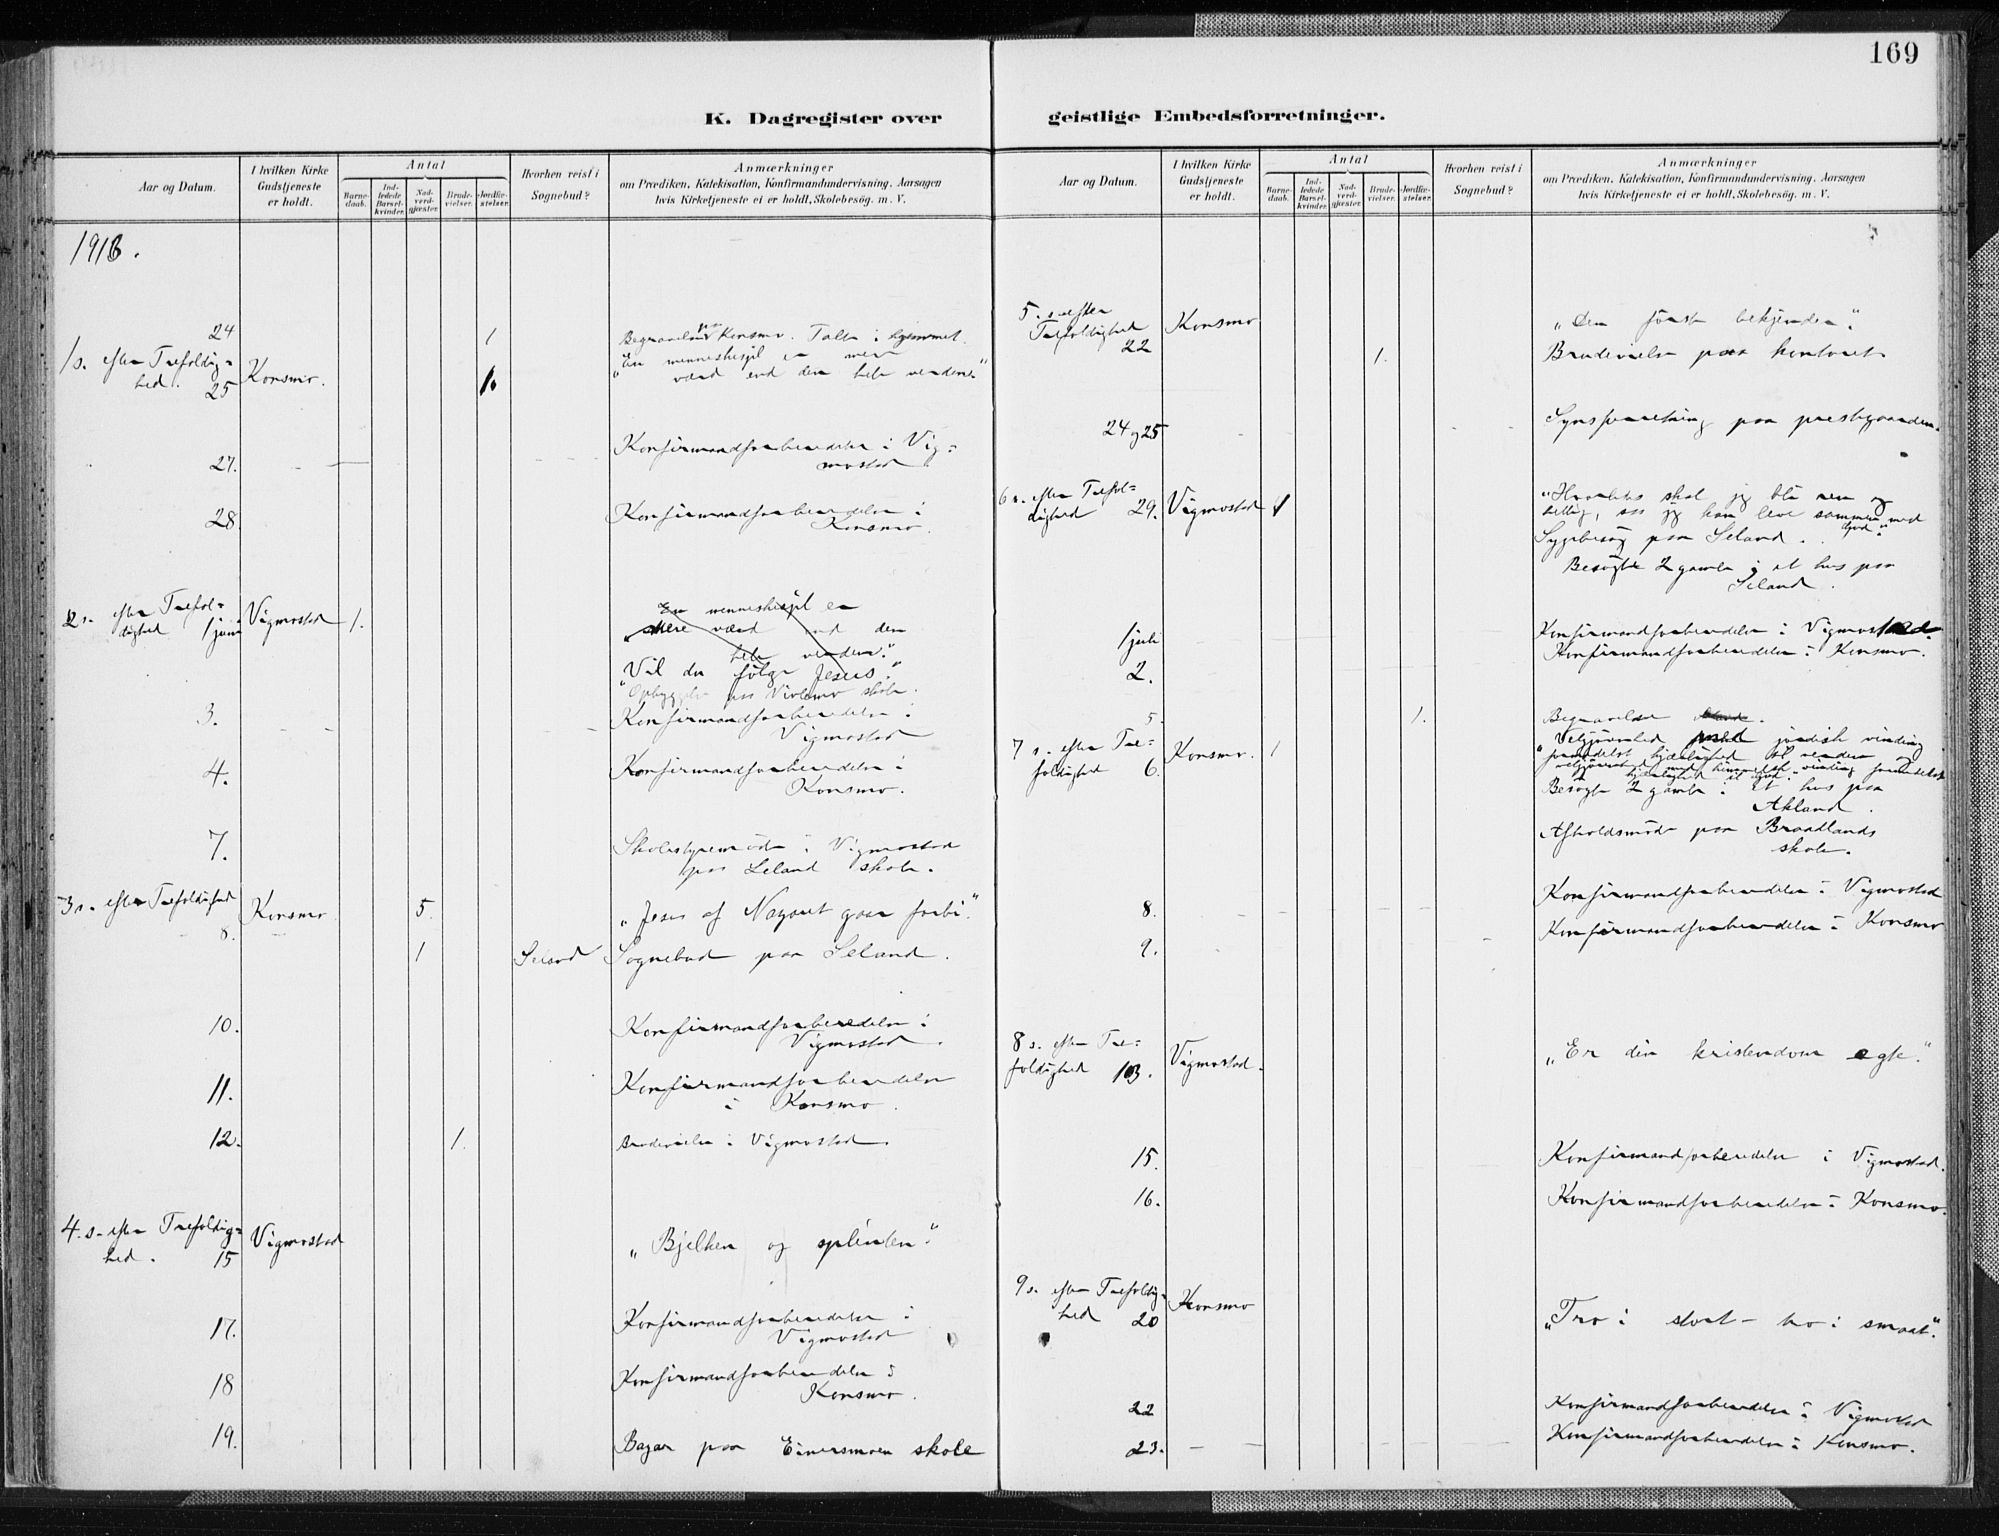 169
K. Dagregister over
Aar og Datum.
I hvilken Kirke Gudstjeneste er holdt.
Antal
Barnedaab.
Indledede Barselkvinder.
Nadverdgjæster.
Brudevielser.
Jordfæstelser.
Hvorhen reist i Sognebud?
Anmærkninger
om Prædiken, Katekisation, Konfirmandundervisning. Aarsagen
hvis Kirketjeneste ei er holdt, Skolebesøg. m. V.
1918.
24 1 Begravelse paa Konsmo. Talte i hjemmet.
1 s. efter Trefoldighed. 25 Konsmo. 1. „En menneskesjel er mer
værd end den hele verden."
27. Konfirmandforberedelse i Vigmostad.
28. Konfirmandforberedelse i
Konsmo.
2 s. efter Trefoldighed 1 juni Vigmostad 1. En menneskesjel er
„Mere værd end den
hele verden."
„Vil du følge Jesus."
Opbyggelse paa skole.
3. Konfirmandforberedelse i
Vigmostad
4. Konfirmandforberedelse i
Konsmo.
7. Skolestyremøde i Vigmostad
paa Leland skole.
3 s. efter Trefoldighed 8. Konsmo 5. „Jesus af Nazaret gaar forbi."
1 Seland Sognebud paa Seland.
10. Konfirmandforberedelse i
Vigmostad.
11. Konfirmandforberedelse
i Konsmo.
12. 1. Brudevielse i Vigmostad.
4. s. efter Trefoldighed. 15 Vigmostad „Bjelken og splinten".
17. Konfirmandforberedelse i
Vigmostad
18 Konfirmandforberedelse i
Konsmo.
19. Bazar paa Eimersmoen skole
geistlige Embedsforretninger.
Aar og Datum.
I hvilken Kirke Gudstjeneste er holdt.
Antal
Barnedaab.
Indledede Barselkvinder.
Nadverdgjæster.
Brudevielser.
Jordfæstelser.
Hvorhen reist i Sognebud?
Anmærkninger
om Prædiken, Katekisation, Konfirmandundervisning. Aarsagen
hvis Kirketjeneste ei er holdt, Skolebesøg. m. V.
5. s. efter Trefoldighed 22 Konsmo „Den første bekjender".
1. Brudevielse paa kontoret
24 og 25 Synsforretning paa prestegaarden.
6 s. efter Trefoldighed 29. Vigmostad 1 „Hvorledes skal jeg bli ren og
hellig, saa jeg kan leve sammen med
Gud."
Sygebesøg paa Seland.
Besøgte 2 gamle i et hus paa
Seland.
1 juli Konfirmandforberedelse i Vigmostad.
2. Konfirmandforberedelse i Konsmo.
5. 1. Begravelse
7 s. efter Trefoldighed 6. Konsmo. 1 „Veltjenthed med jordisk vinding
Besøgte 2 gamle i et hus paa
Akland.
Afholdsmøde paa Braadlands
skole.
8. Konfirmandforberedelse i Vigmostad
9. Konfirmandforberedelse i Konsmo
8 s. efter Trefoldighed 13. Vigmostad. „Er din kristendom egte."
15. Konfirmandforberedelse i Vigmostad.
16. Konfirmandforberedelse i Konsmo.
9 s. efter Trefoldighed 20 Konsmo „Tro i stort – tro i smaat".
22 Konfirmandforberedelse i Vigmostad
23. Konfirmandforberedelse i Konsmo.